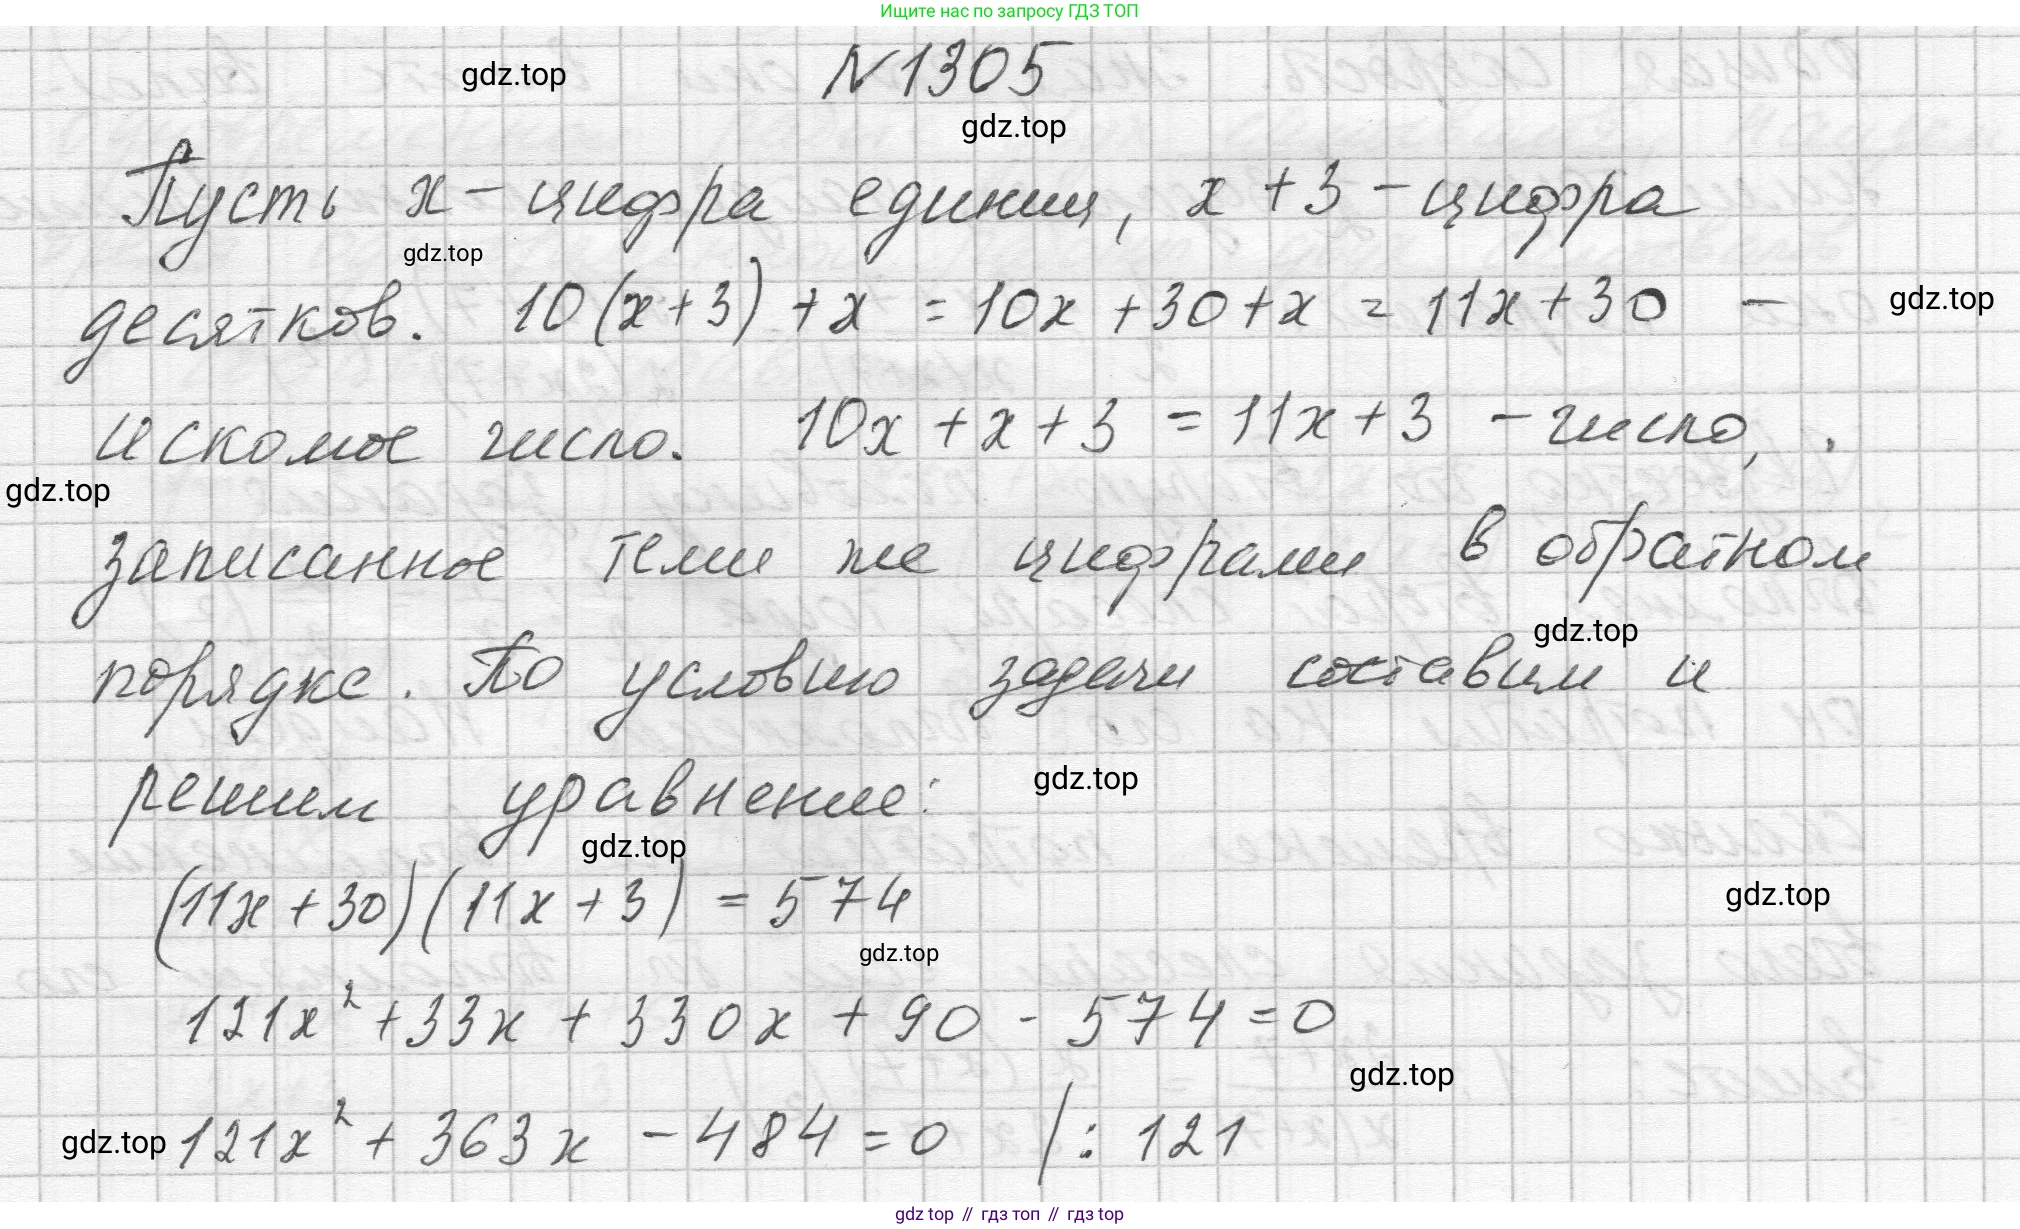 Ищите нас по запросу ГДЗ ТОП
gdz.top
N 1305
gdz.top
Пусть x - цифра единиц, x + 3 - цифра
gdz.top
десятков. 10(x+3) + x = 10x + 30 + x = 11x + 30 -
gdz.top
искомое число. 10x + x + 3 = 11x + 3 - число,
gdz.top
записанное теми же цифрами в обратном
gdz.top
порядке. По условию задачи составим и
gdz.top
решим уравнение:
gdz.top
(11x + 30)(11x + 3) = 574
gdz.top
gdz.top
121x² + 33x + 330x + 90 - 574 = 0
gdz.top
gdz.top
121x² + 363x - 484 = 0 | : 121
gdz top // гдз топ // гдз top